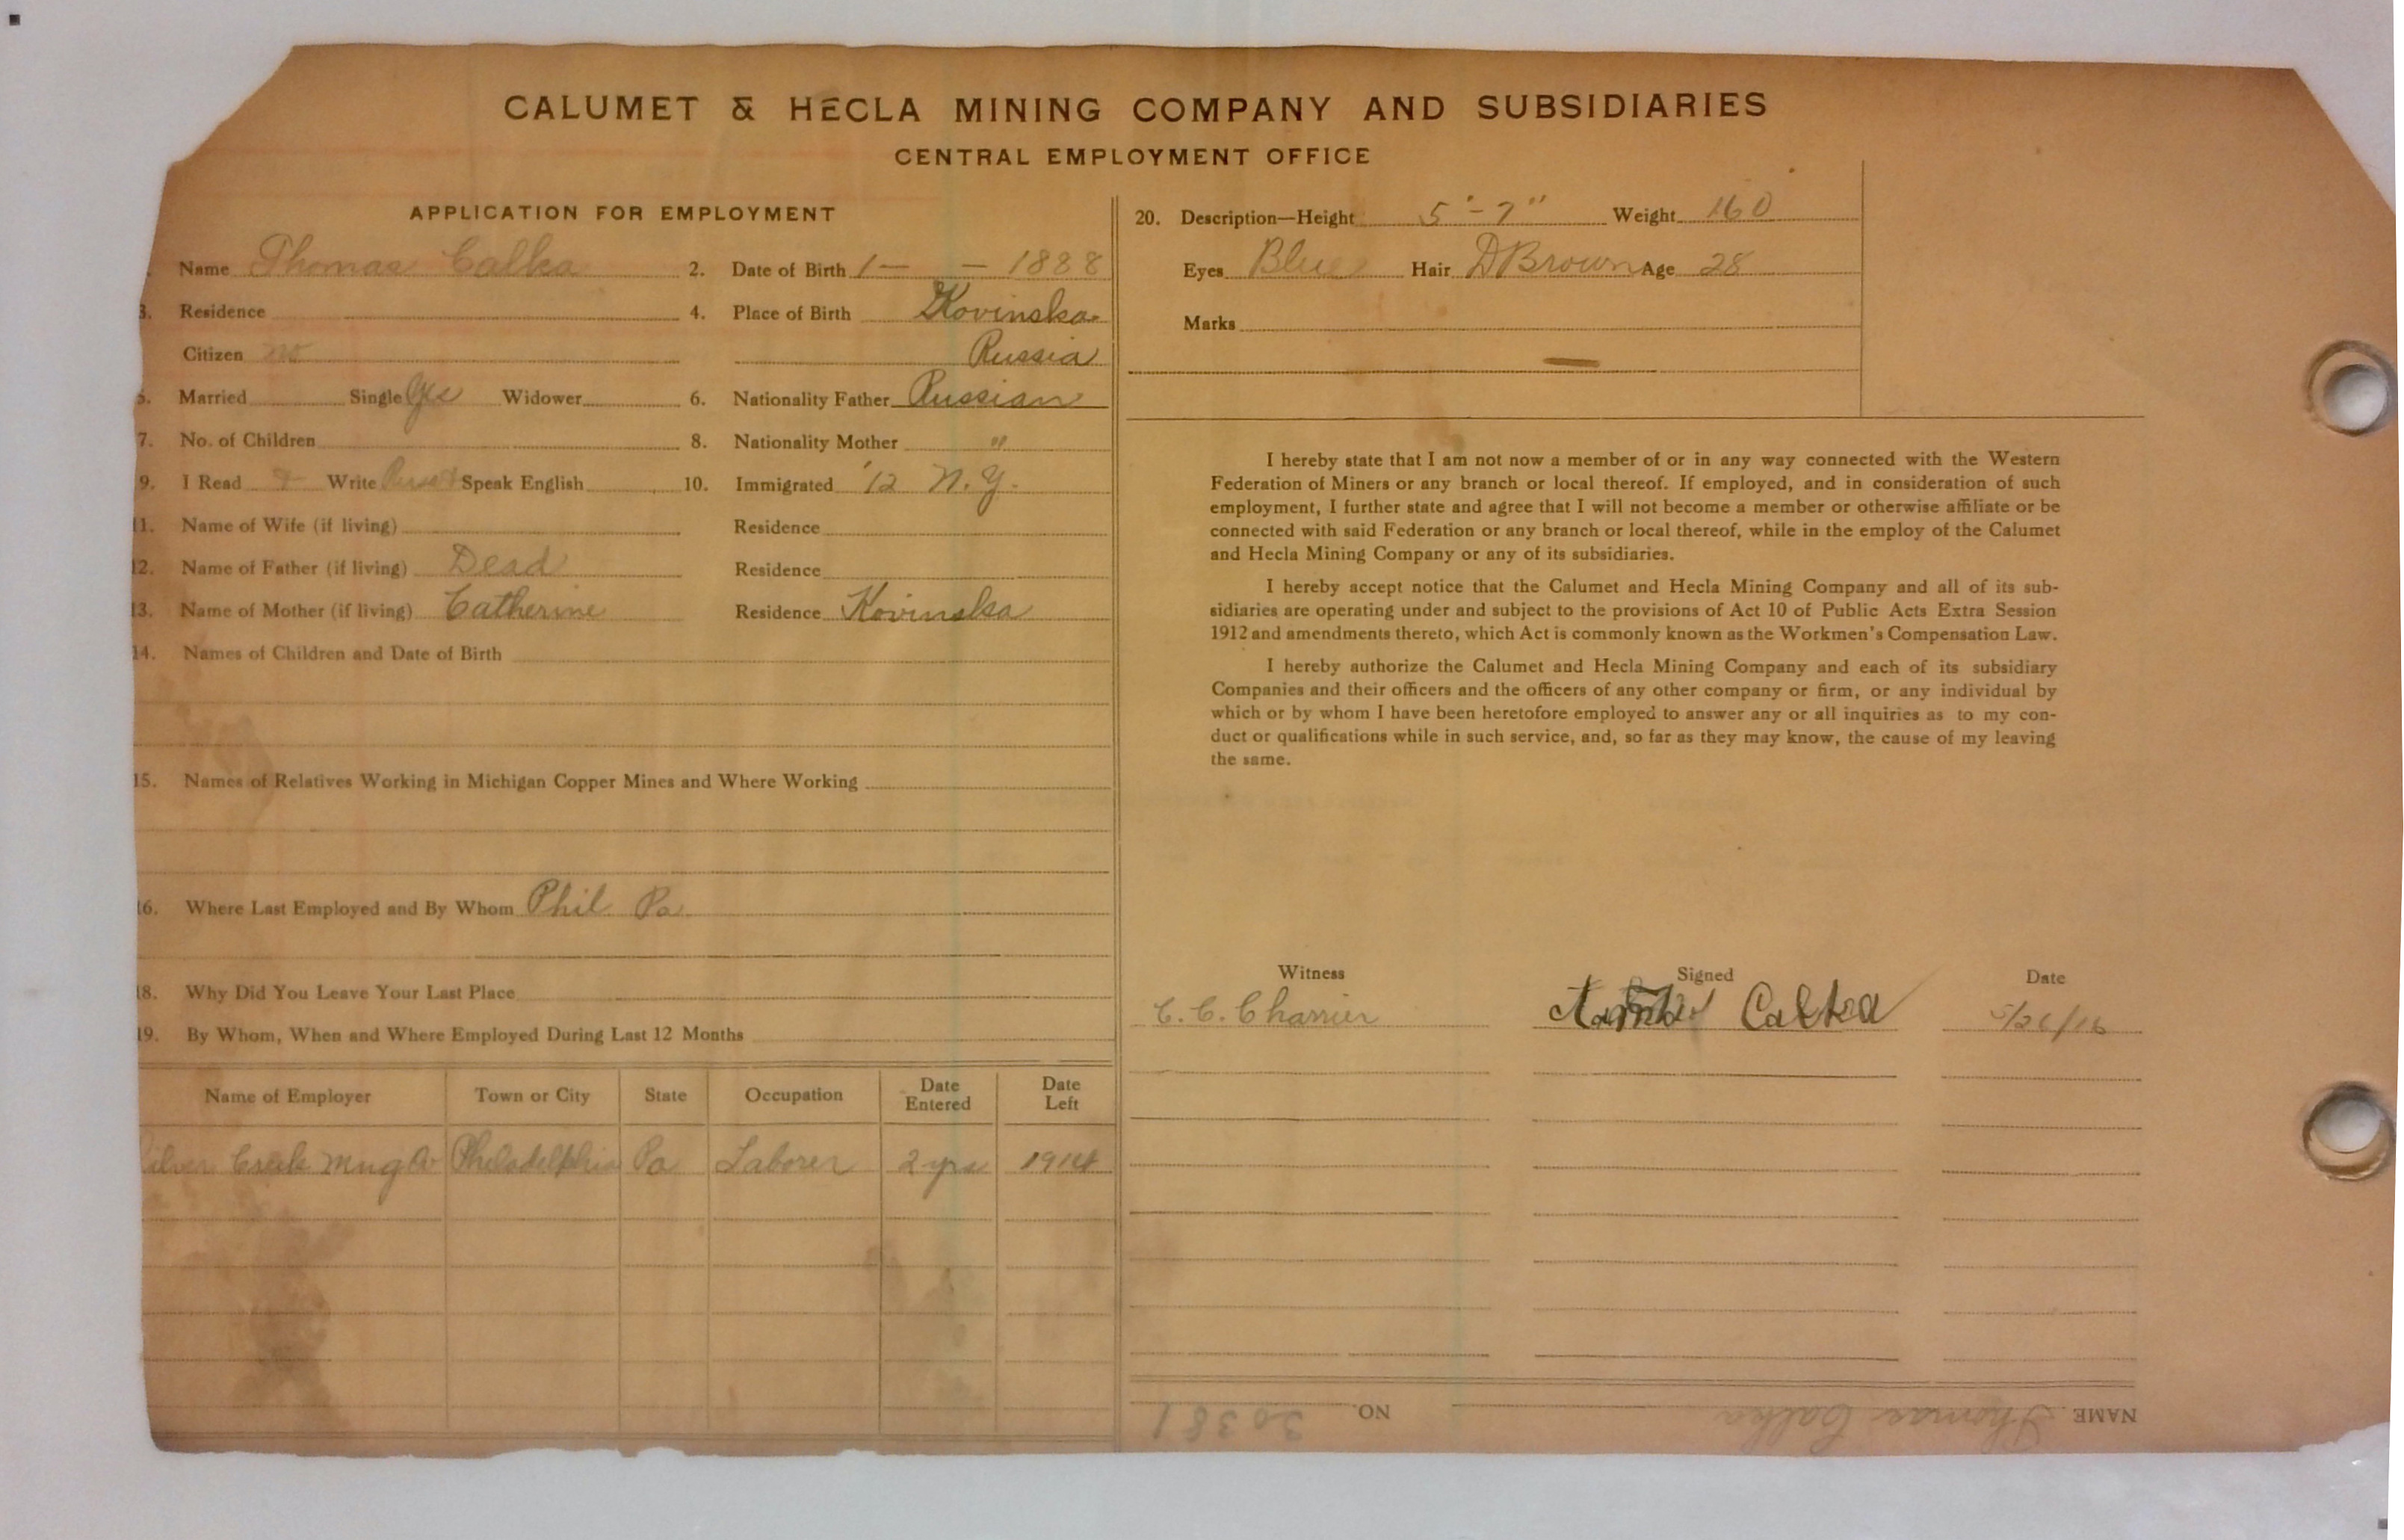 CALUMET & HECLA MINING COMPANY AND SUBSIDIARIES
CENTRAL EMPLOYMENT OFFICE
APPLICATION FOR EMPLOYMENT
Name Thomas Calka 2. Date of Birth 1 — — 1888
3. Residence 4. Place of Birth Kovinska
Citizen no Russia
5. Married Single Yes Widower 6. Nationality Father Russian
7. No. of Children 8. Nationality Mother "
9. I Read Write Speak English 10. Immigrated '12 N.Y.
11. Name of Wife (if living) Residence
12. Name of Father (if living) Dead Residence
13. Name of Mother (if living) Catherine Residence Kovinska
14. Names of Children and Date of Birth
15. Names of Relatives Working in Michigan Copper Mines and Where Working
16. Where Last Employed and By Whom Phil Pa
18. Why Did You Leave Your Last Place
19. By Whom, When and Where Employed During Last 12 Months
Name of Employer Town or City State Occupation Date Entered Date Left
Creek Mng Co Philadelphia Pa Laborer 2 yrs 1914
20. Description—Height 5'-7" Weight 160
Eyes Blue Hair D Brown Age 28
Marks
—
I hereby state that I am not now a member of or in any way connected with the Western
Federation of Miners or any branch or local thereof. If employed, and in consideration of such
employment, I further state and agree that I will not become a member or otherwise affiliate or be
connected with said Federation or any branch or local thereof, while in the employ of the Calumet
and Hecla Mining Company or any of its subsidiaries.
I hereby accept notice that the Calumet and Hecla Mining Company and all of its sub-
sidiaries are operating under and subject to the provisions of Act 10 of Public Acts Extra Session
1912 and amendments thereto, which Act is commonly known as the Workmen's Compensation Law.
I hereby authorize the Calumet and Hecla Mining Company and each of its subsidiary
Companies and their officers and the officers of any other company or firm, or any individual by
which or by whom I have been heretofore employed to answer any or all inquiries as to my con-
duct or qualifications while in such service, and, so far as they may know, the cause of my leaving
the same.
Witness Signed Date
C. C. Charrier Calka 5/26/16
NAME Thomas Calka NO. 30381